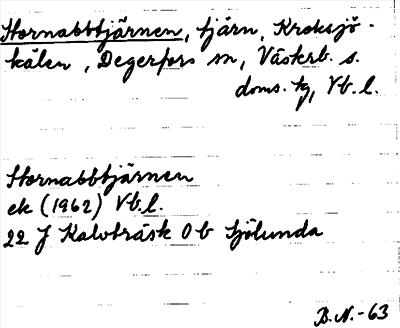 Stornabbtjärnen, tjärn, Kroksjö-
kälen, Degerfors sn, Västerb. s.
doms. tg, Vb. l.
Stornabbtjärnen
ek (1962) Vb. l.
22 J Kalvträsk 0 b Sjölunda
B.N.-63